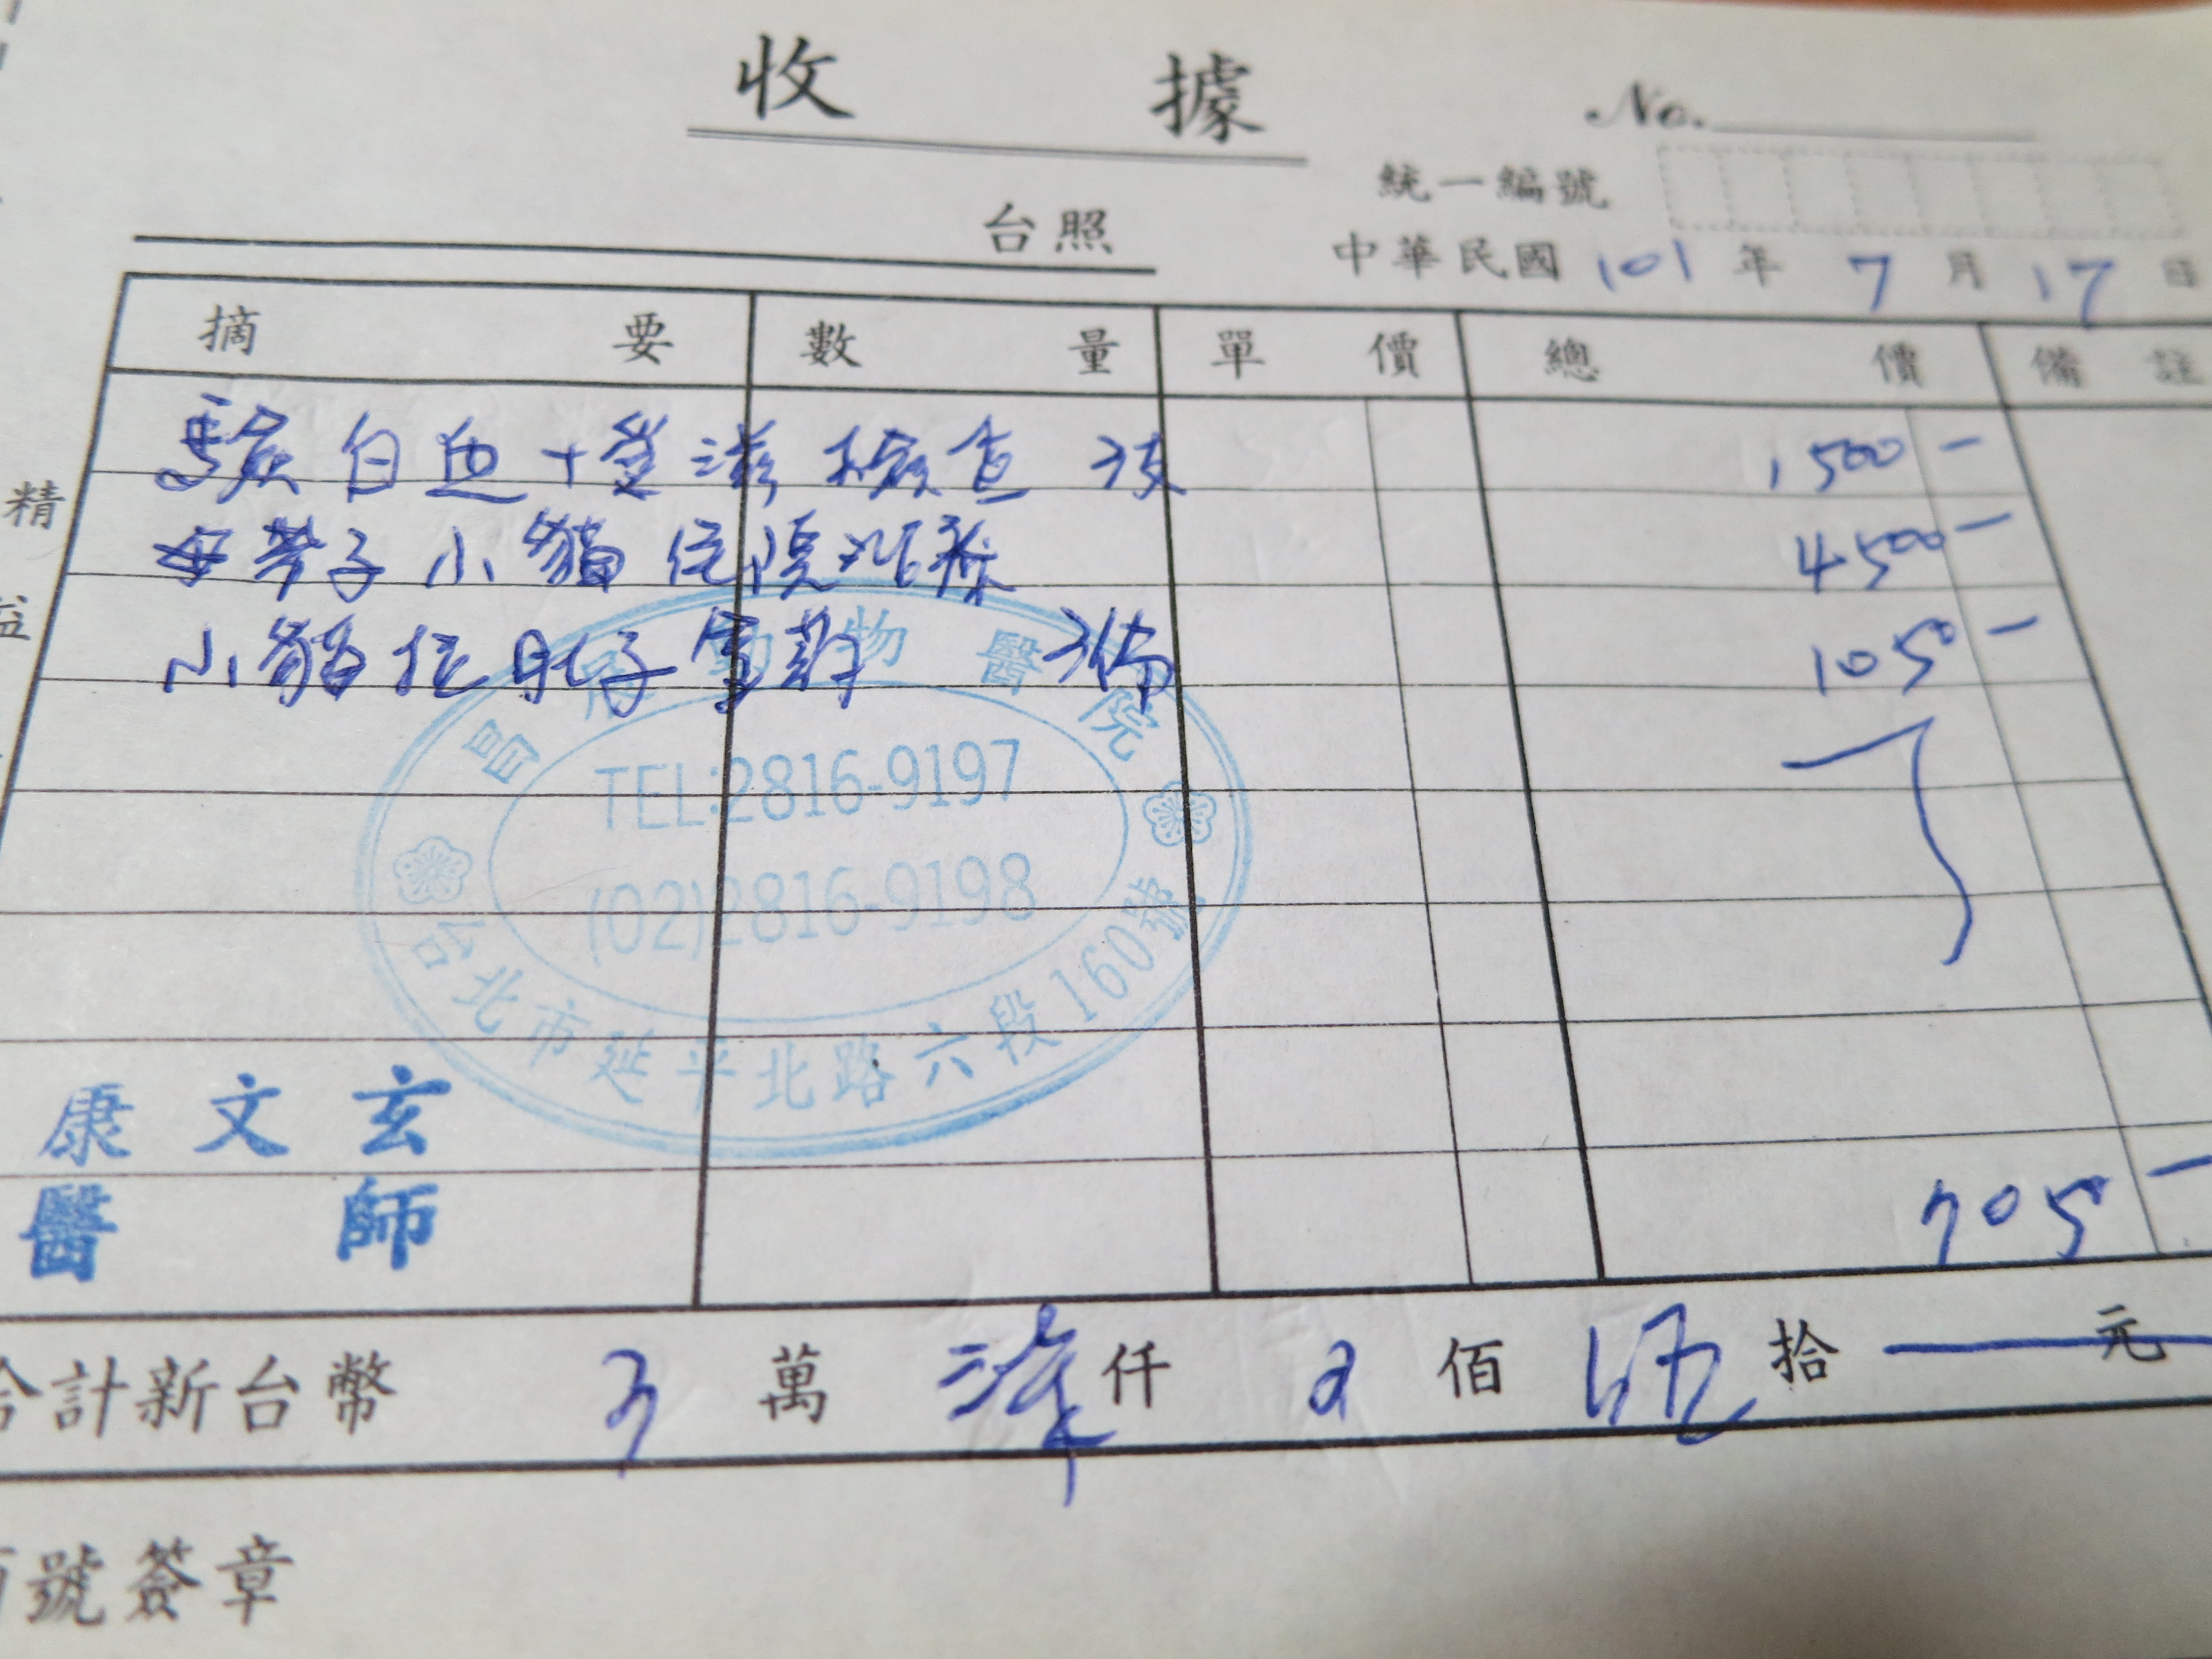 收 據
No.
統一編號
台照
中華民國 101 年 7 月 17 日
摘 要 數 量 單 價 總 價 備 註
驗白血+愛滋檢查 1500-
帶子小貓住院治療 4500-
小貓拉肚子 1050-
精
益
昌 動物醫院
TEL:2816-9197
(02)2816-9198
台北市延平北路六段160號
康文玄
醫師
705 -
合計新台幣 萬 柒 仟 佰 伍 拾 元
號簽章